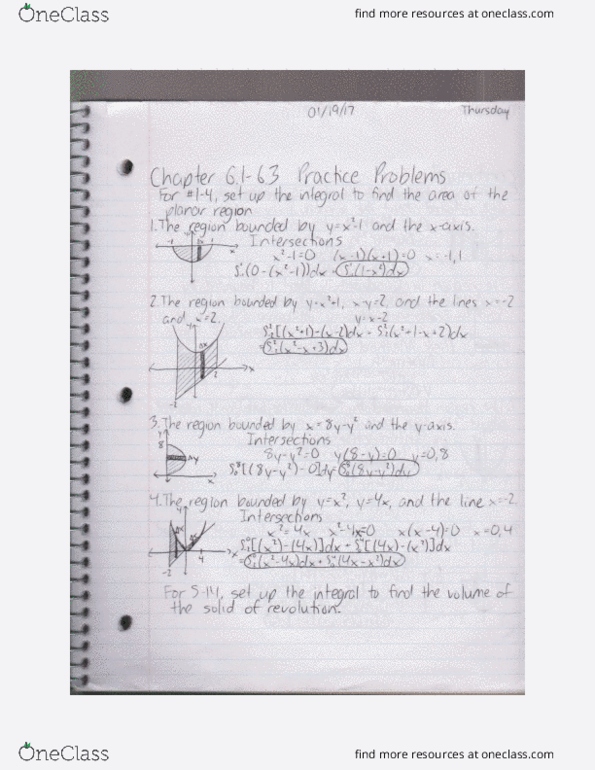 OneClass
find more resources at oneclass.com
01/19/17 Thursday
Chapter 6.1-6.3 Practice Problems
For #1-4, set up the integral to find the area of the
planar region
1. The region bounded by y=x²-1 and the x-axis.
Intersections
x²-1=0 (x-1)(x+1)=0 x=-1,1
(0-(x²-1))dx = (1-x²)dx
2. The region bounded by y=x²+1, x-y=2, and the lines x=-2
and x=2.
y=x-2
[(x²+1)-(x-2)]dx = (x²+1-x+2)dx
=(x²-x+3)dx
3. The region bounded by x=8y-y² and the y-axis.
Intersections
8y-y²=0 y(8-y)=0 y=0,8
[(8y-y²)-0]dy=(8y-y²)dy
4. The region bounded by y=x², y=4x, and the line x=-2
Intersections
x²=4x x²-4x=0 x(x-4)=0 x=0,4
[(x²)-(4x)]dx + [(4x)-(x²)]dx
=(x²-4x)dx + (4x-x²)dx
For 5-14, set up the integral to find the volume of
the solid of revolution.
OneClass
find more resources at oneclass.com